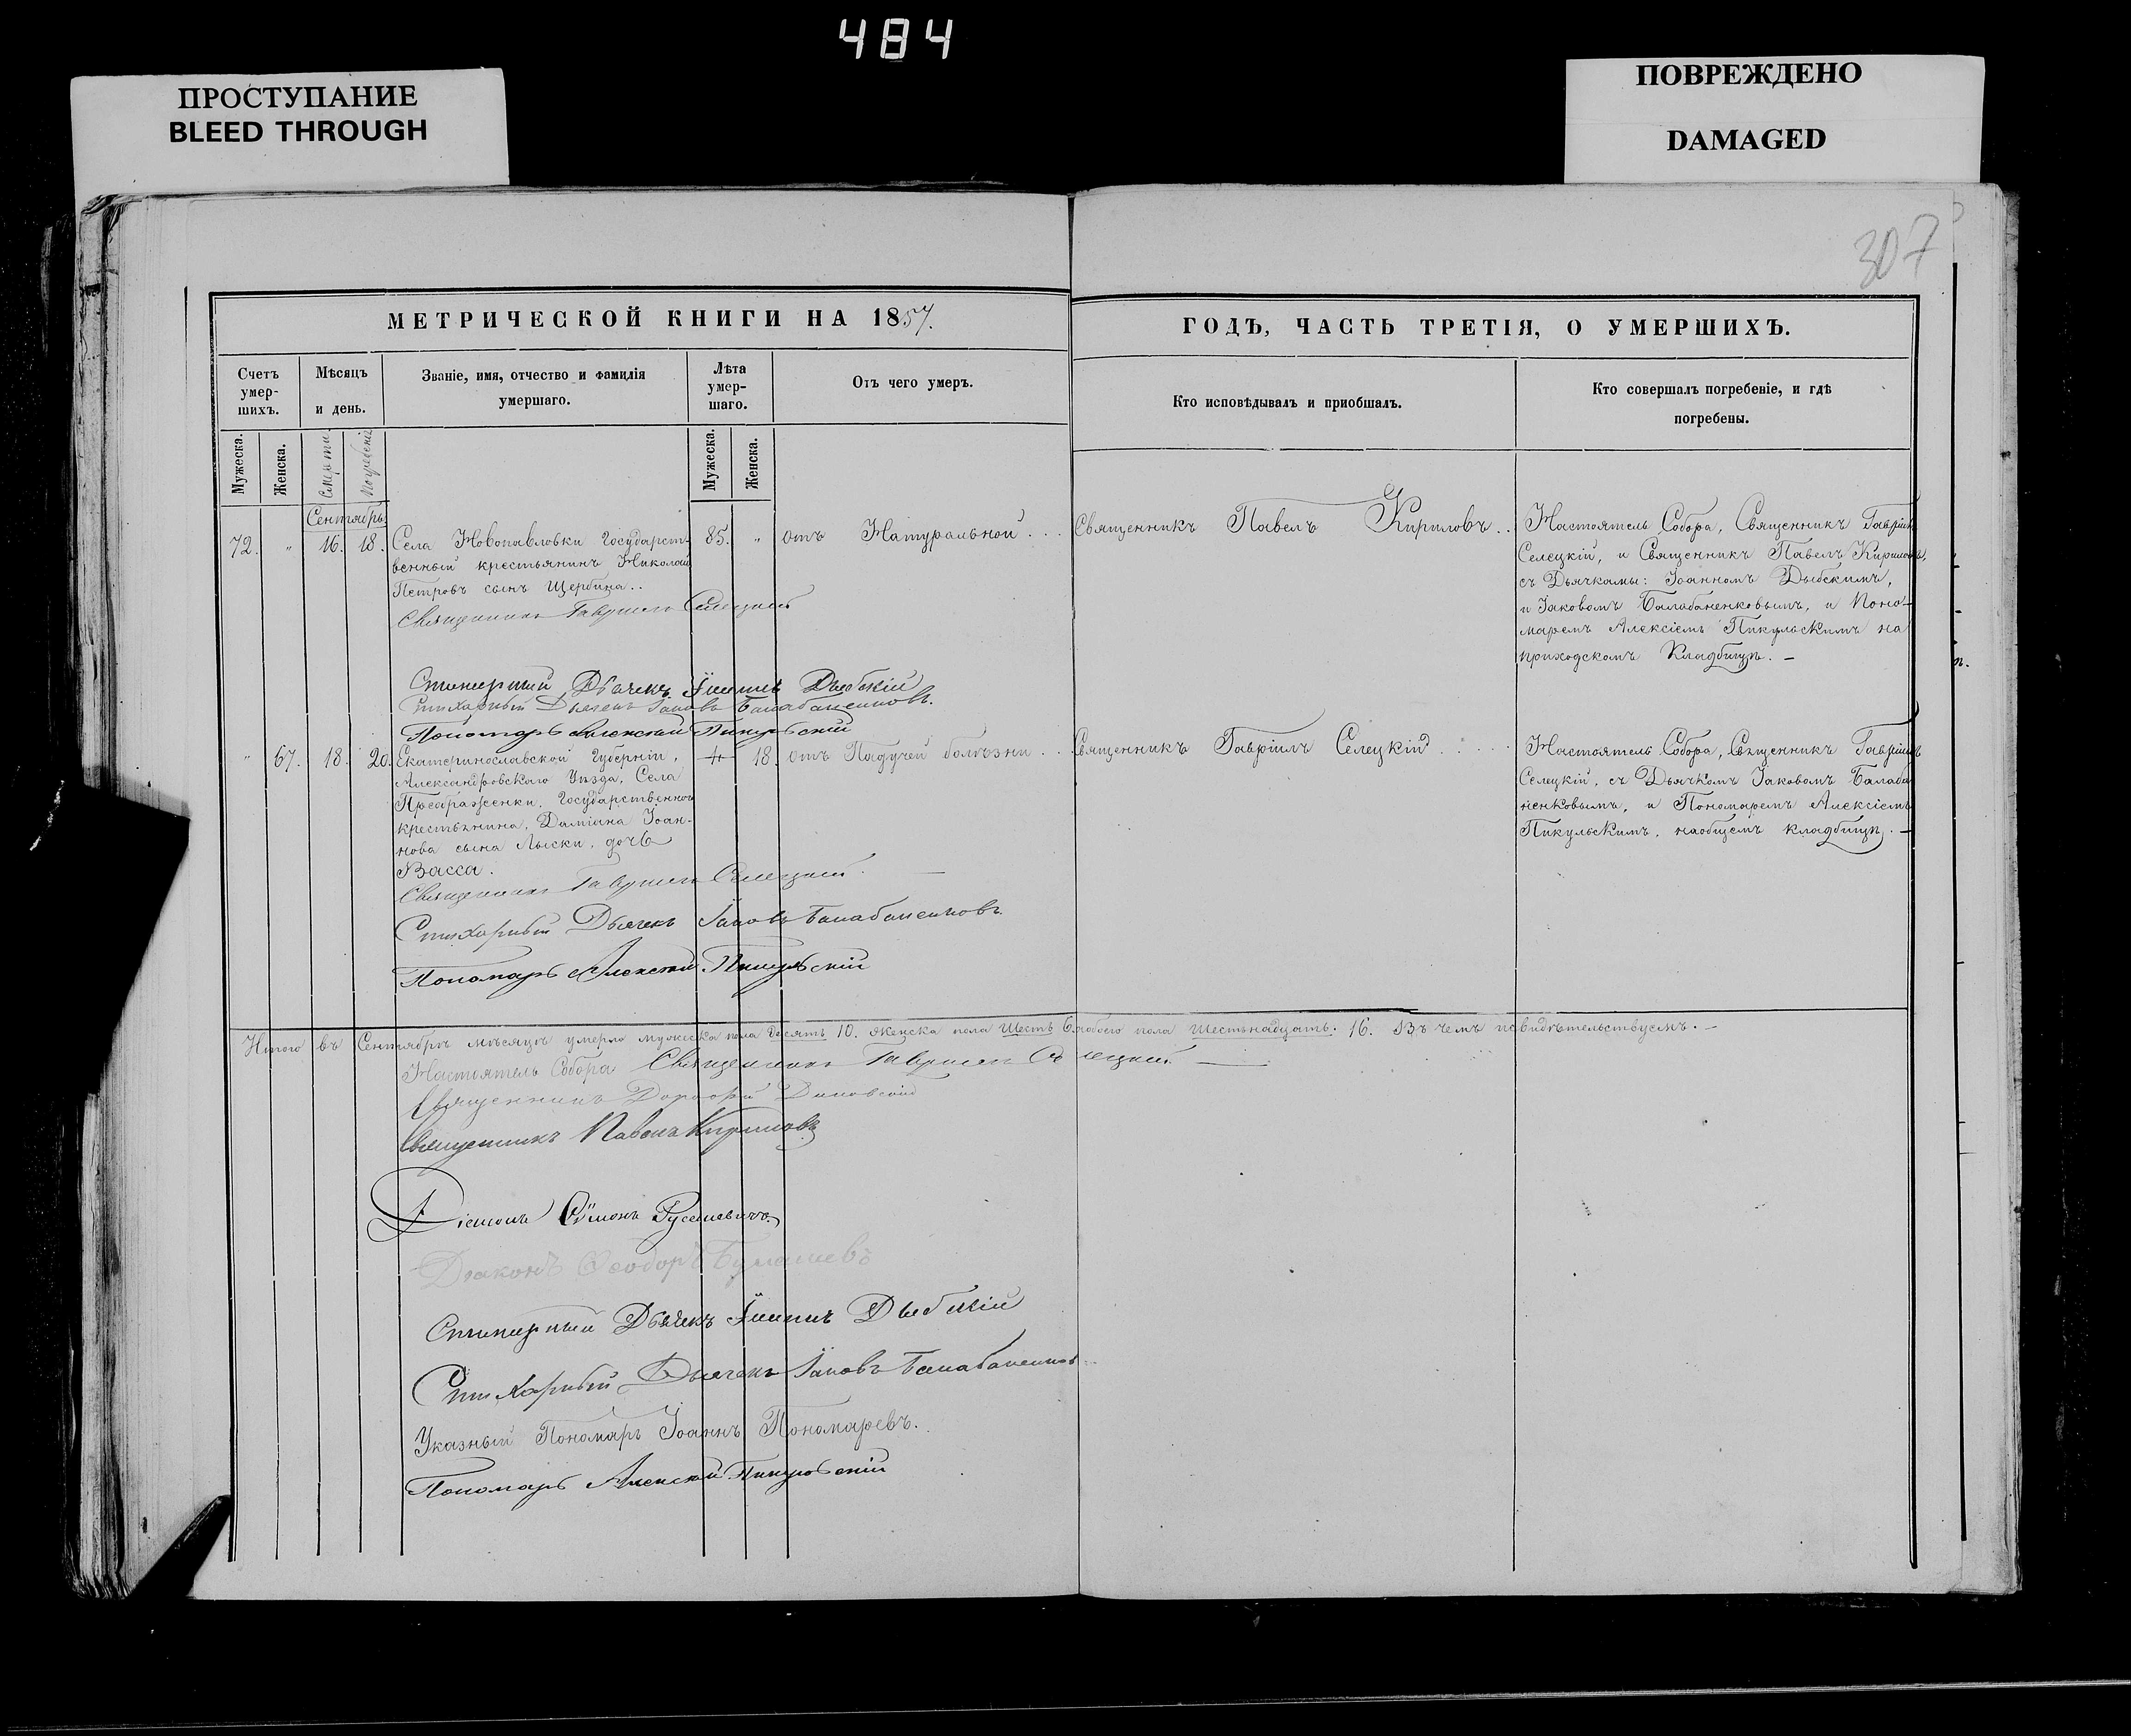 484
ПРОСТУПАНИЕ
BLEED THROUGH
ПОВРЕЖДЕНО
DAMAGED
307
МЕТРИЧЕСКОЙ КНИГИ НА 1857.
ГОДЪ, ЧАСТЬ ТРЕТІЯ, О УМЕРШИХЪ.
Счетъ умер-шихъ.
Мѣсяцъ и день.
Званіе, имя, отчество и фамилія умершаго.
Лѣта умер-шаго.
Отъ чего умеръ.
Кто исповѣдывалъ и приобщалъ.
Кто совершалъ погребеніе, и гдѣ погребены.
Мужеска.
Женска.
Смерти.
Погребенія
Мужеска.
Женска.
Сентябрь.
72. " 16. 18.
Села Новопавловки Государст-
венный крестьянинъ Николай
Петровъ сынъ Щербина..
85. "
отъ Натуральной...
Священникъ Павелъ Кириловъ..
Настоятель Собора, Священникъ Гавріилъ
Селецкій, и Священникъ Павелъ Кириловъ,
съ Дьячкамы: Іоанномъ Дыбскимъ,
и Іаковомъ Балабаненковымъ, и Поно-
маремъ Алексіемъ Пикульскимъ на
приходскомъ Кладбищѣ. –
Священникъ Гавріилъ Селецкій
Стихарный Дьячекъ Іоаннъ Дыбскій
Стихарный Дьячекъ Іаковъ Балабаненковъ.
Пономарь Алексій Пикульскій
" 67. 18. 20.
Екатеринославской Губерніи,
Александровскаго Уѣзда, Села
Преображенки, Государственнаго
крестьянина, Даміана Іоан-
нова сына Лыски, дочь
Васса.
18.
отъ Падучей болѣзни..
Священникъ Гавріилъ Селецкій.....
Настоятель Собора, Священникъ Гавріилъ
Селецкій, съ Дьячкомъ Іаковомъ Балаба
ненковымъ, и Пономаремъ Алексіемъ
Пикульскимъ, наобщемъ кладбищѣ. –
Священникъ Гавріилъ Селецкій. –
Стихарный Дьячекъ Іаковъ Балабаненковъ.
Пономарь Алексій Пикульскій
Итого въ Сентябрѣ мѣсяцѣ умерло мужеска пола десять 10. женска пола шесть 6. обоего пола шестьнадцать. 16. Въ чемъ
Настоятель Собора Священникъ Гавріилъ Селецкій –
Священникъ
Священникъ Павелъ Кириловъ
Діаконъ Сѵмонъ
Діаконъ Ѳеодоръ
Стихарный Дьячекъ Іоаннъ Дыбскій
Стихарный Дьячекъ Іаковъ Балабаненковъ
Указный Пономарь Іоаннъ Пономаревъ.
Пономарь Алексій Пикульскій